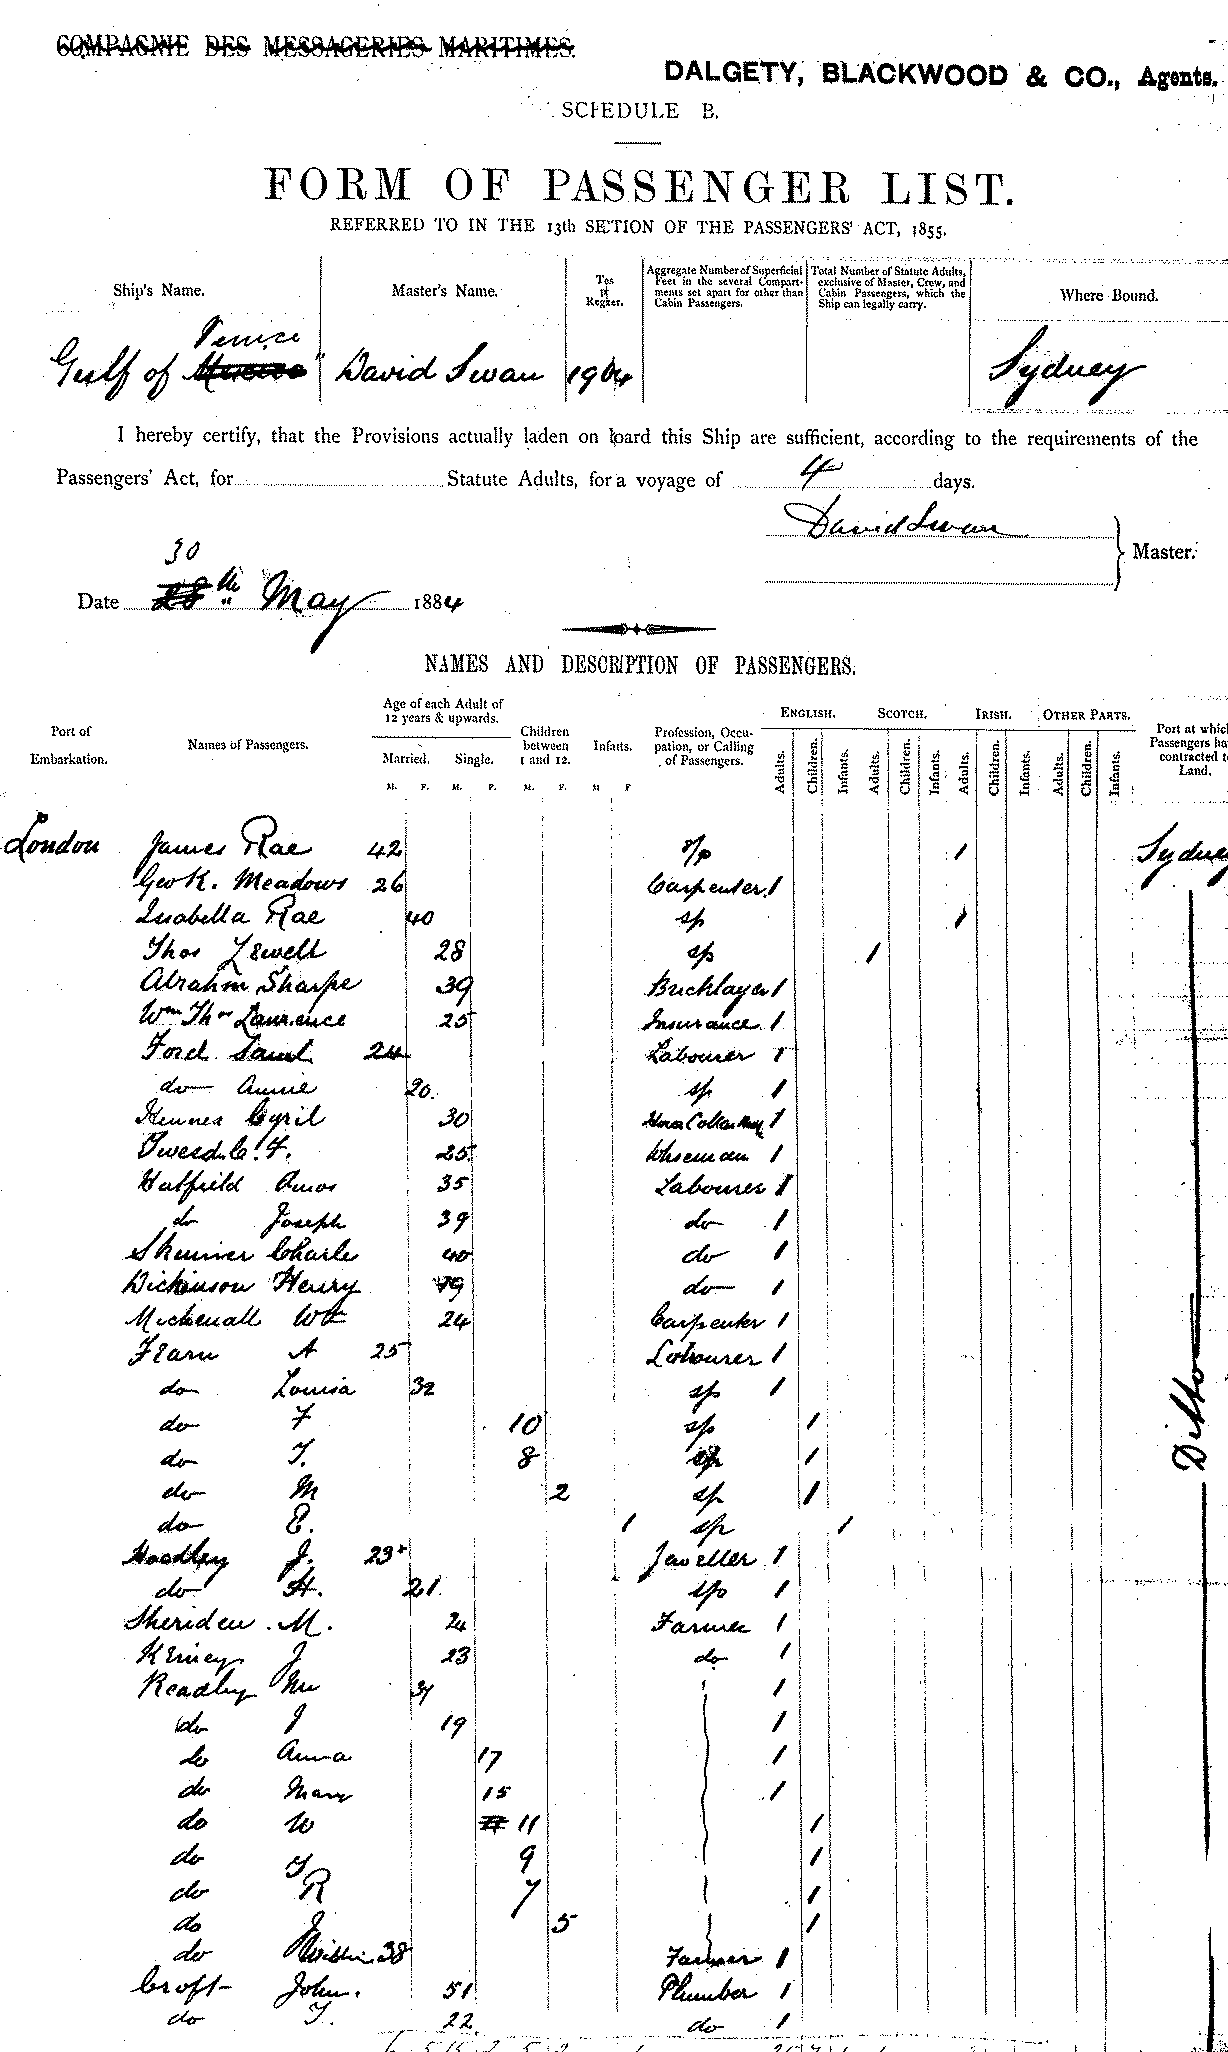 COMPAGNIE DES MESSAGERIES MARITIMES.
DALGETY, BLACKWOOD & CO., Agents.
SCHEDULE B.
FORM OF PASSENGER LIST.
REFERRED TO IN THE 13th SECTION OF THE PASSENGERS' ACT, 1855.
Ship's Name. Master's Name. Tns of Register. Aggregate Number of Superficial Feet in the several Compartments set apart for other than Cabin Passengers. Total Number of Statute Adults, exclusive of Master, Crew, and Cabin Passengers, which the Ship can legally carry. Where Bound.
Venice
Gulf of Mexico" David Swan 1964 Sydney
I hereby certify, that the Provisions actually laden on board this Ship are sufficient, according to the requirements of the
Passengers' Act, for Statute Adults, for a voyage of 4 days.
David Swan
Master.
30
Date 28th May 1884
NAMES AND DESCRIPTION OF PASSENGERS.
Port of Embarkation. Names of Passengers. Age of each Adult of 12 years & upwards. Married. Single. Children between 1 and 12. Infants. Profession, Occupation, or Calling of Passengers. ENGLISH. SCOTCH. IRISH. OTHER PARTS. Port at which Passengers ha contracted t Land.
M. F. M. F. M. F. M F Adults. Children. Infants. Adults. Children. Infants. Adults. Children. Infants. Adults. Children. Infants.
London James Rae 42 1 Sydney
Geo K. Meadows 26 Carpenter 1
Isabella Rae 40 sp 1
Thos 28 sp 1
Abrahm Sharpe 39 Bricklayer 1
Wm Thos Lawrence 25 Insurance 1
Ford Saml 24 Labourer 1
do Annie 20 sp 1
Cyril 30 1
F. 25 1
Hatfield Amos 35 Labourer 1
do Joseph 39 do 1
Skinner Charle 40 do 1
Dickinson Henry 49 do 1
Wm 24 Carpenter 1
Fearn A 25 Labourer 1
do Louisa 32 sp 1
do F 10 sp 1
do T. 8 sp 1
do M 2 sp 1
do E. 1 sp 1
Hoadley J. 23 Jeweller 1
do H. 21 sp 1
Sheriden M. 24 Farmer 1
J 23 do 1
Readley 1
do J 19 1
do Anna 17 1
do Mary 15 1
do W 11 1
do 9 1
do R 7 1
do J 5 1
do 38 Farmer 1
Croft John. 51 Plumber 1
do T. 22 do 1
Ditto